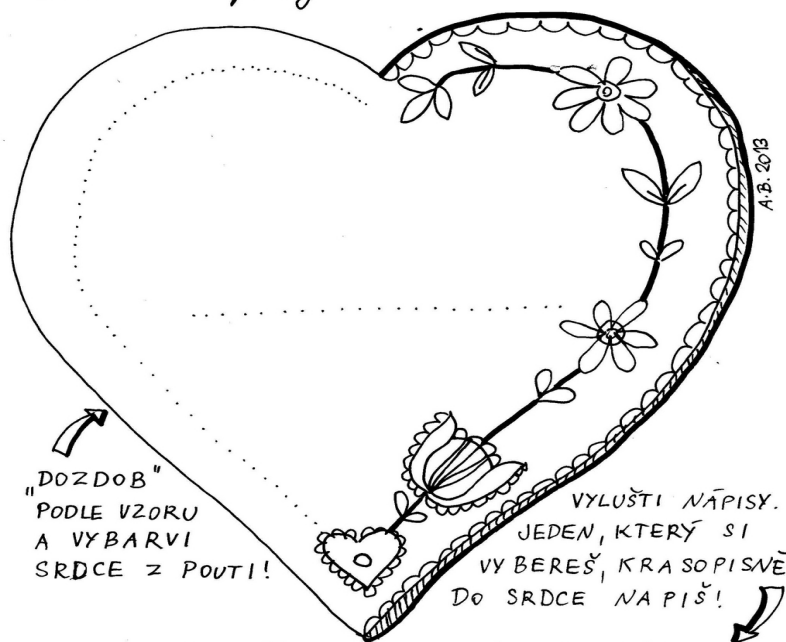 A.B. 2013
"DOZDOB"
PODLE VZORU
A VYBARVI
SRDCE Z POUTI!
VYLUŠTI NÁPISY.
JEDEN, KTERÝ SI
VYBEREŠ, KRASOPISNĚ
DO SRDCE NAPIŠ!